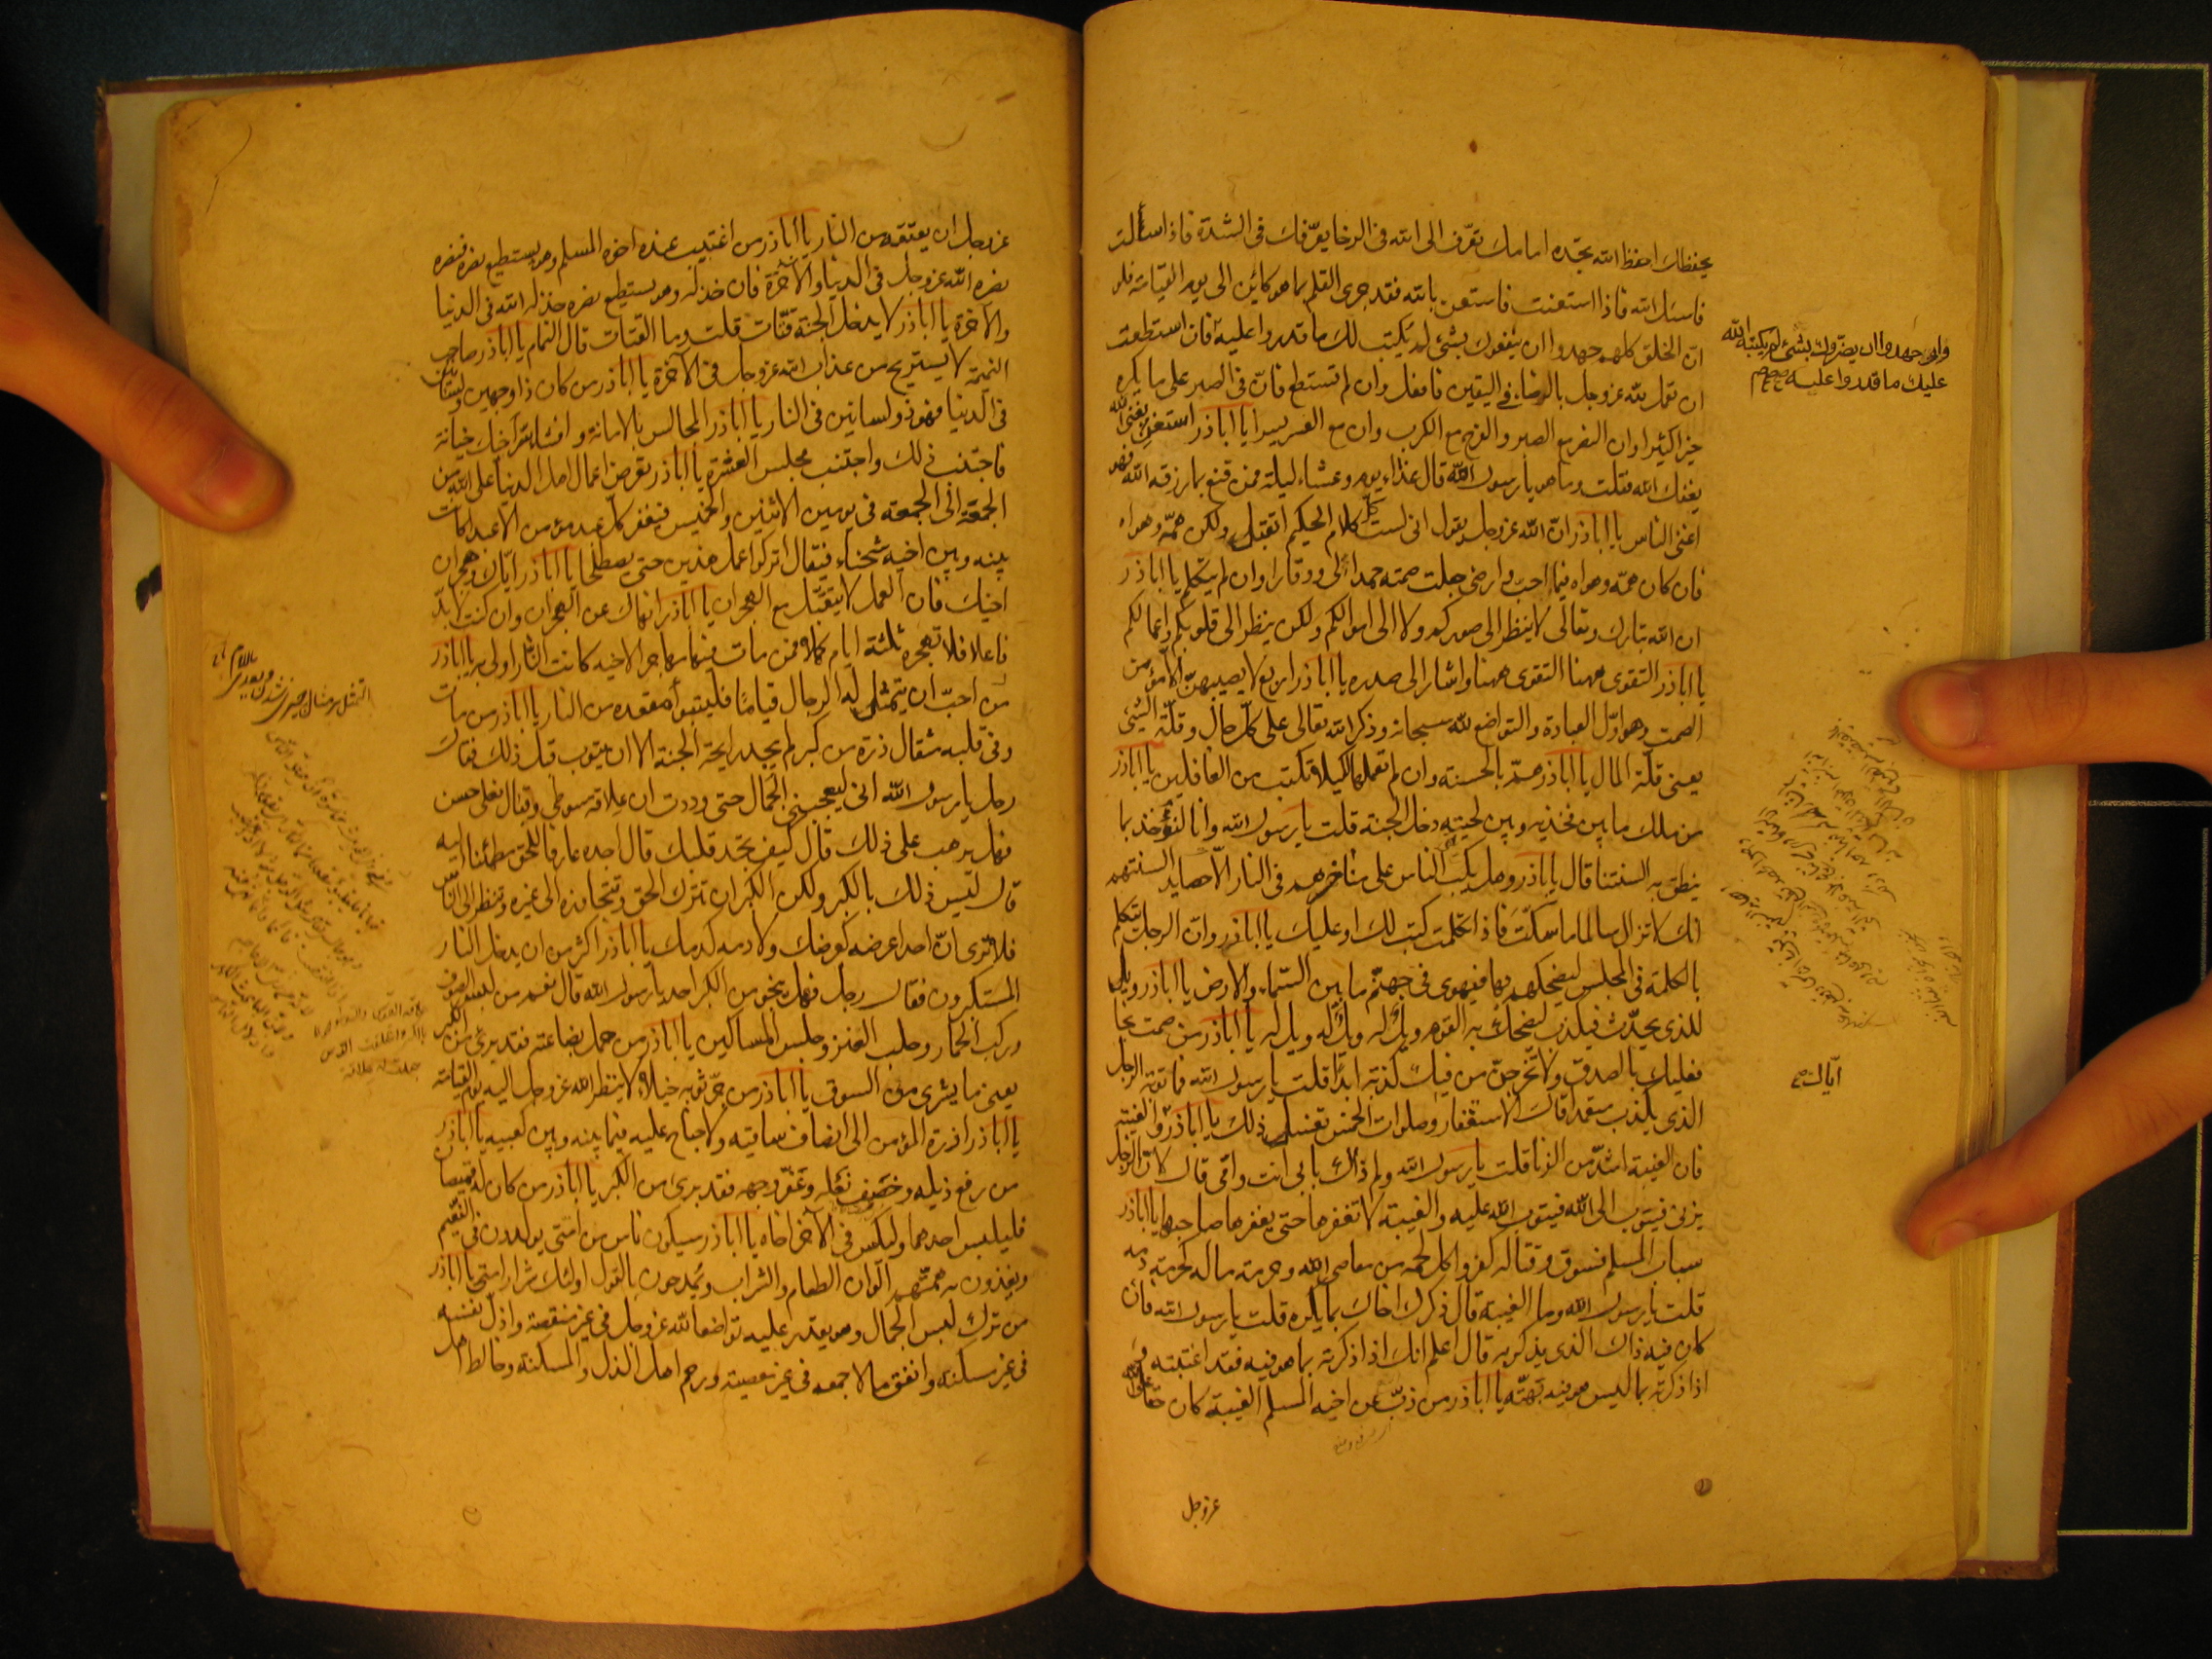 يحفظك احفظ الله تجده امامك تعرّف الى الله فى الرخا يعرّفك فى الشدة فاذا سألت
فاسئل الله فاذا استعنت فاستعن بالله فقد جرى القلم بما هو كائن الى يوم القيامة فلو
انّ الخلق كلهم جهدوا ان ينفعوك بشئ لم يكتب لك ما قدروا عليه فان استطعت
ان تعمل لله عزوجل بالرضا فى اليقين فافعل وان لم تستطع فانّ فى الصبر على ما يكره
خيرا كثيرا وان النصر مع الصبر والفرج مع الكرب وان مع العسر يسرا يا اباذر استغن بغنى الله
يغنك الله فقلت وما هو يا رسول الله قال غذاء يوم وعشاء ليلة فمن قنع بما رزقه الله فهو
اغنى الناس يا اباذر انّ الله عزوجل يقول انى لست كل كلام الحكيم اتقبل ولكن همّه وهواه
فان كان همّه وهواه فيما احبّ وارضى جعلت صمته حمدا لى ووقارا وان لم يتكلم يا اباذر
ان الله تبارك وتعالى لا ينظر الى صوركم ولا الى اموالكم ولكن ينظر الى قلوبكم واعمالكم
يا اباذر التقوى ههنا التقوى ههنا واشار الى صدره يا اباذر اربع لا يصيبهنّ الا مؤمن
الصمت وهو اوّل العبادة والتواضع لله سبحانه وذكر الله تعالى على كلّ حال وقلّة الشئ
يعنى قلّة المال يا اباذر همّ بالحسنة وان لم تعملها لكيلا تكتب من الغافلين يا اباذر
من ملك ما بين فخذيه وبين لحيته دخل الجنة قلت يا رسول الله وانا لنؤخذ بما
ينطق به السنتنا قال يا اباذر وهل يكبّ الناس على مناخرهم فى النار الّا حصايد السنتهم
انك لا تزال سالما ما سكتّ فاذا تكلمت كتب لك او عليك يا اباذر وانّ الرجل يتكلم
بالكلمة فى المجلس ليضحكهم بها فيهوى فى جهنّم ما بين السّماء والارض يا اباذر ويل
للذى يحدّث فيكذب ليضحك به القوم ويل له ويل له ويل له يا اباذر من صمت نجا
فعليك بالصدق ولا تخرجنّ من فيك كذبة ابدا قلت يا رسول الله فما توبة الرجل
الذى يكذب متعمدا قال الاستغفار وصلوات الخمس تغسل ذلك يا اباذر والغيبة
فان الغيبة اشدّ من الزنا قلت يا رسول الله ولم ذاك بابى انت وامّى قال لانّ الرجل
يزنى فيتوب الى الله فيتوب الله عليه والغيبة لا تغفر ها حتى يغفر ها صاحبها يا اباذر
سباب المسلم فسوق وقتاله كفر واكل لحمه من معاصى الله وحرمة ماله كحرمة دمه
قلت يا رسول الله وما الغيبة قال ذكرك اخاك بما يكره قلت يا رسول الله فان
كان فيه ذاك الذى يذكر به قال اعلم انك اذا ذكرته بما هو فيه فقد اغتبته و
اذا ذكرته بما ليس هو فيه بهتّه يا اباذر من ذبّ عن اخيه المسلم الغيبة كان حقا على الله
عزوجل
ولو جهدوا ان يضرّوك بشئ لم يكتبه الله
عليك ما قدروا عليه
اياك
عزوجل ان يعتقه من النار يا اباذر من اغتيب عنده اخوه المسلم وهو يستطيع نصره فنصره
نصره الله عزوجل فى الدنيا والآخرة فان خذله وهو يستطيع نصره خذله الله فى الدنيا
والآخرة يا اباذر لا يدخل الجنة قتّات قلت وما القتات قال النمام يا اباذر صاحب
النميمة لا يستريح من عذاب الله عزوجل فى الآخرة يا اباذر من كان ذا وجهين ولسانين
فى الدنيا فهو ذو لسانين فى النار يا اباذر المجالس بالامانة وافشاء سرّ اخيك خيانة
فاجتنب ذلك واجتنب مجلس العشرة يا اباذر تعرض اعمال اهل الدنيا على الله من
الجمعة الى الجمعة فى يومين الاثنين والخميس فيغفر كلّ عبد مؤمن الا عبدا كانت
بينه وبين اخيه شحناء فيقال اتركوا عمل هذين حتى يصطلحا يا اباذر ايّاك وهجران
اخيك فان العمل لا يتقبّل مع الهجران يا اباذر انهاك عن الهجران وان كنت لا بدّ
فاعلا فلا تهجره ثلثة ايام كملا فمن مات فيها مهاجرا لاخيه كانت النّار اولى به يا اباذر
من احبّ ان يتمثل له الرجال قياما فليتبوأ مقعده من النار يا اباذر من مات
وفى قلبه مثقال ذرة من كبر لم يجد رايحة الجنة الا ان يتوب قبل ذلك فقال
رجل يا رسول الله انى ليعجبنى الجمال حتى وددت ان علاقة سوطى وقبال نعلى حسن
فهل يرهب على ذلك قال كيف تجد قلبك قال اجده عارفا للحق مطمئنا اليه
قال ليس ذلك بالكبر ولكن الكبر ان تترك الحق وتتجاوزه الى غيره وتنظر الى الناس
فلا ترى انّ احدا عرضه كعرضك ولا دمه كدمك يا اباذر اكثر من ان يدخل النار
المستكبرون فقال رجل فهل ينجو من الكبر احد يا رسول الله قال نعم من لبس الصوف
وركب الحمار وحلب العنز وجلس المساكين يا اباذر من حمل بضاعته فقد برئ من الكبر
يعنى ما يشترى من السوق يا اباذر من جرّ ثوبه خيلاء لا ينظر الله عزوجل اليه يوم القيامة
يا اباذر ازرة المؤمن الى انصاف ساقيه ولا جناح عليه فيما بينه وبين كعبيه يا اباذر
من رفع ذيله وخصف نعله وعفّر وجهه فقد برئ من الكبر يا اباذر من كان له قميصان
فليلبس احدهما وليكس فى الآخر اخاه يا اباذر سيكون ناس من امّتى يولدون فى النعيم
ويغذون به همّتهم الوان الطعام والشراب ويمدحون بالقول اولئك شرار امتى يا اباذر
من ترك لبس الجمال وهو يقدر عليه تواضعا لله عزوجل فى غير منقصة واذلّ نفسه
فى غير مسكنة وانفق مالا جمعه فى غير معصية ورحم اهل الذل والمسكنة وخالط اهل